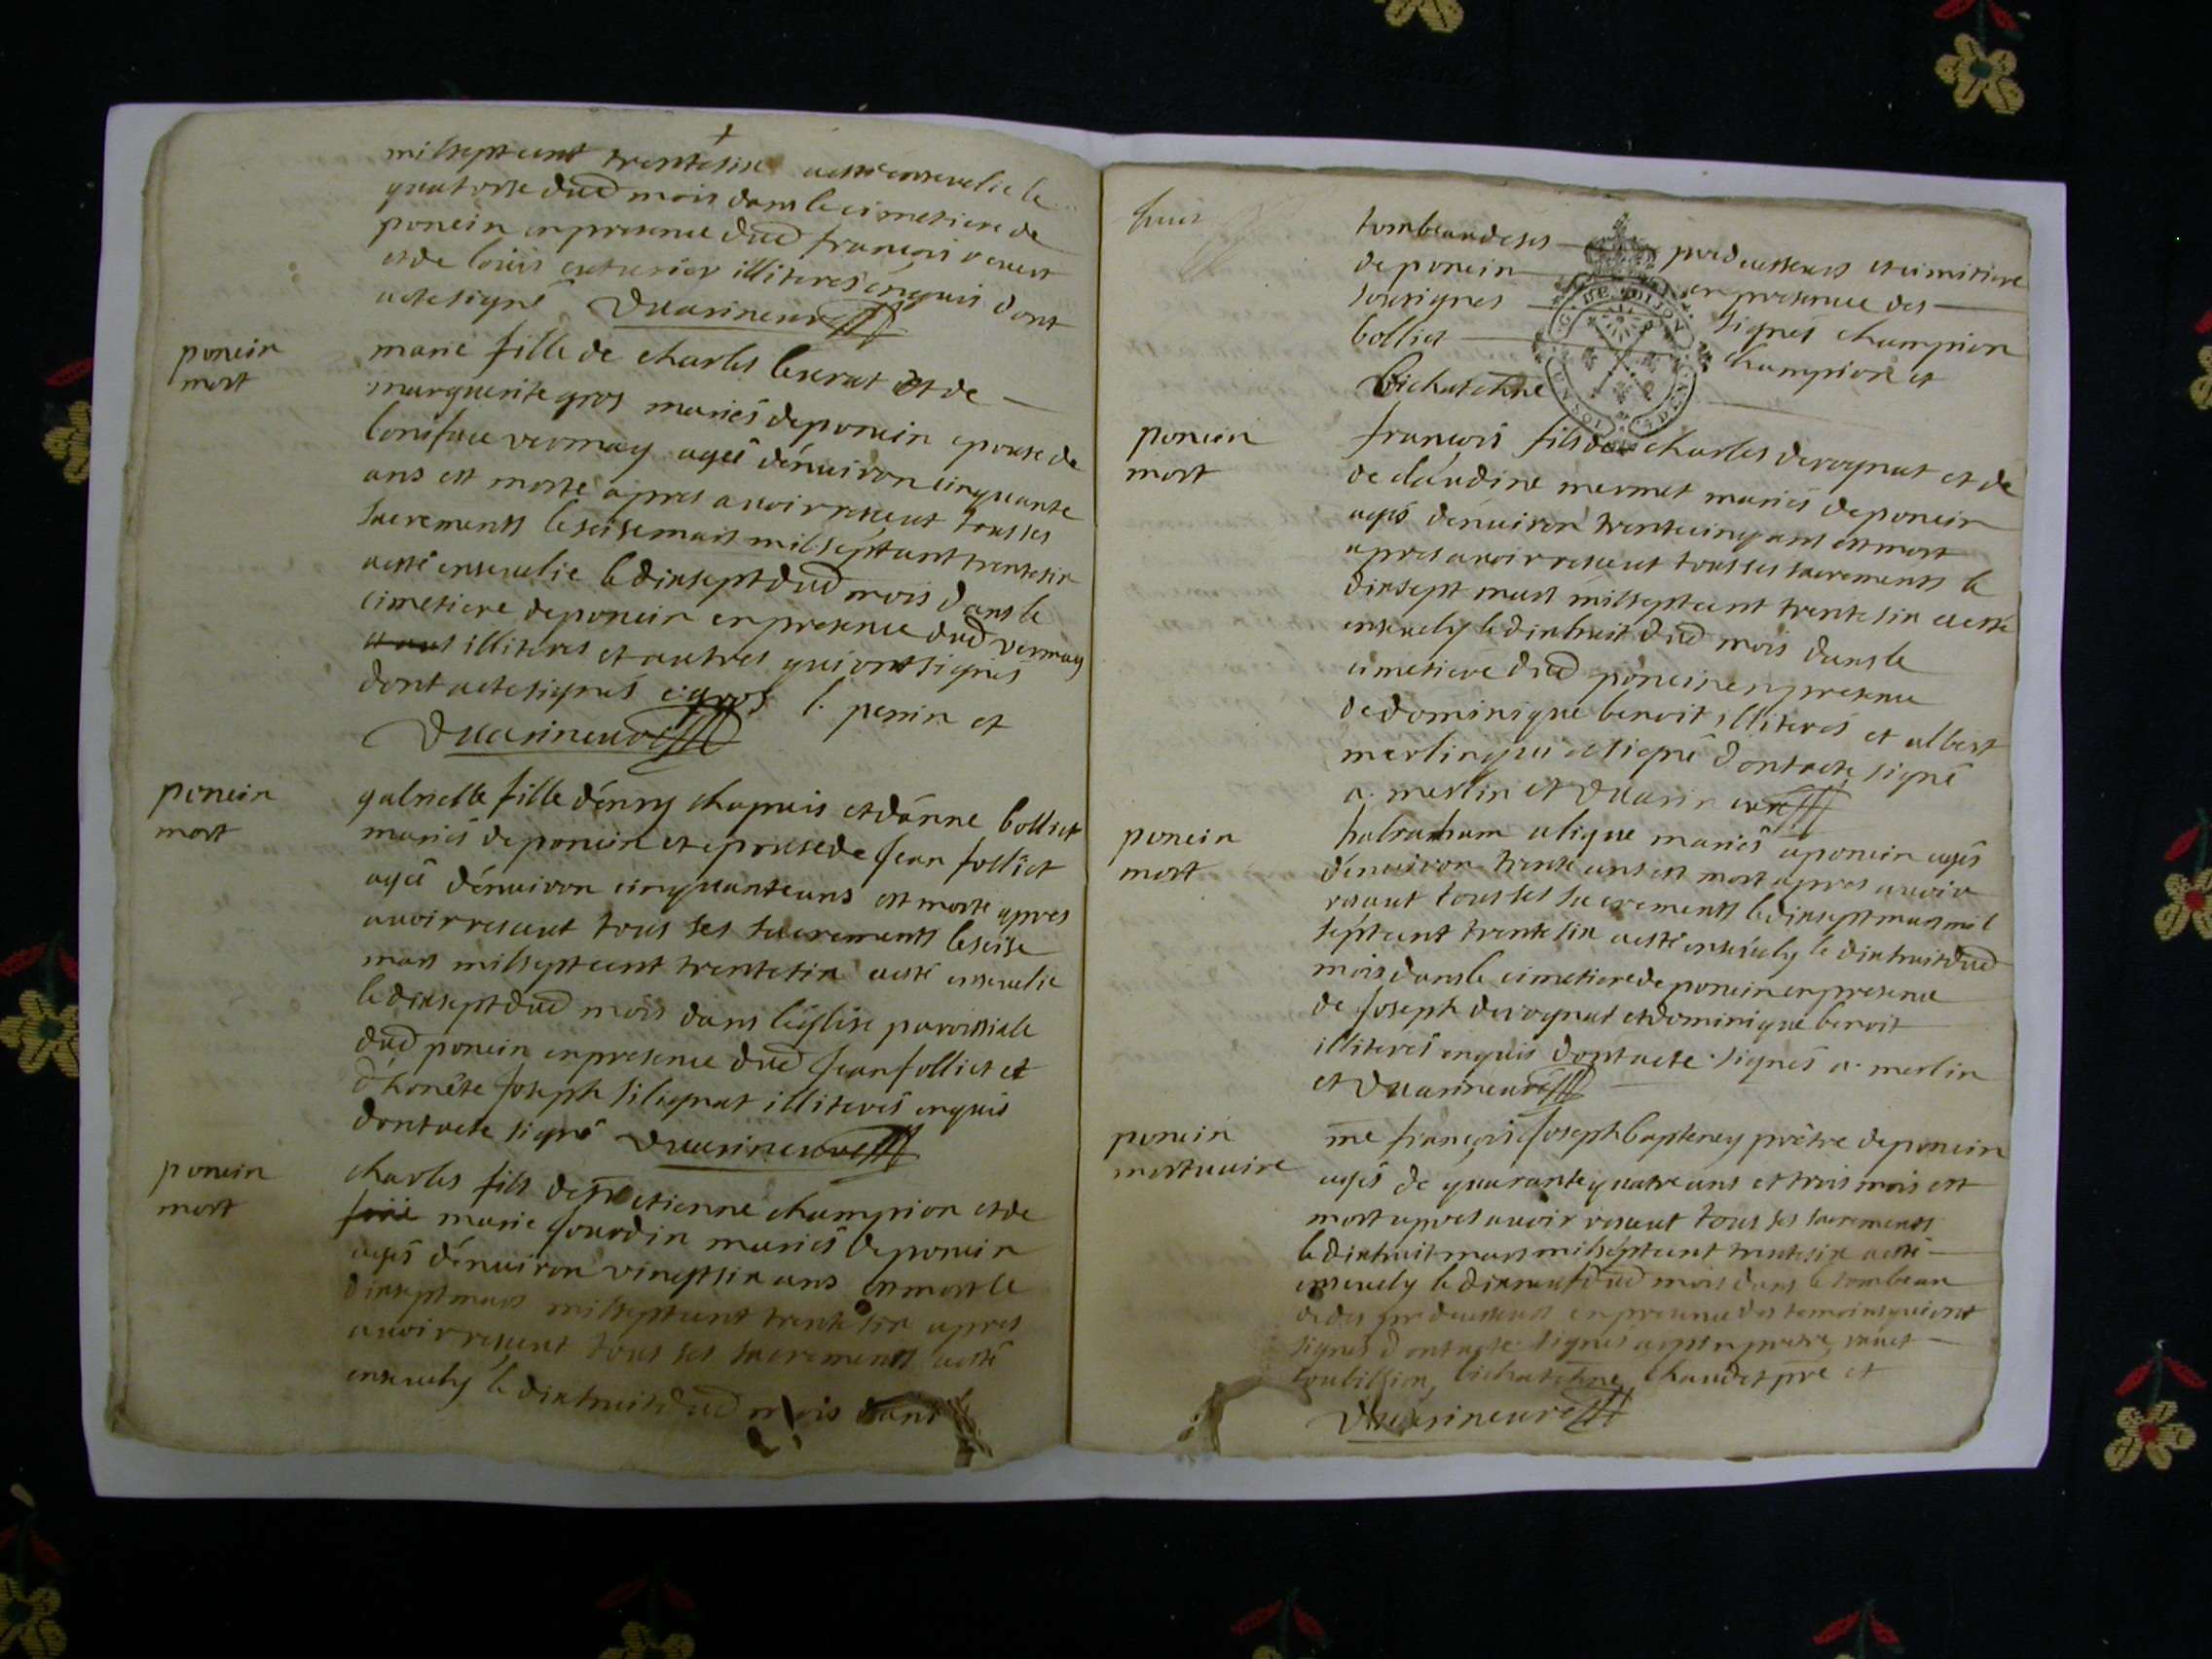 milsept cent trente six aesté ensevelie le
quatorse dud mois dans le cimetiere de
poncin en presence dud francois
et de loüis illiteres enquis dont
acte signé
poncin
mort
marie fille de charles et de
marguerite gros mariés de poncin epouse de
boniface vermay agée dénuiron cinquante
ans est morte apres auoir resceut tous ses
sacrements le seise mars mil sept cent trente six
aesté ensevelie le dixsept dud mois dans le
cimetiere de poncin en presence dud vermay
illiteres et autres qui ont signés
dont acte signés c. gros l. perrin et
poncin
mort
gabrielle fille dénry chapuis et dánne bolliet
mariés de poncin et epouse de jean folliet
agée dénuiron cinquante ans est morte apres
auoir resceut tous ses sacrements le seise
mars milsept cent trente six aesté ensevelie
le dixsept dud mois dans léglise paroissiale
dud poncin en presence dud jean folliet et
d'honéte joseph silignat illiterés enquis
dont acte signé
poncin
mort
charles fils de sr etienne champion et de
marie jourdin mariés de poncin
agés dénuiron vingt six ans est mort le
dixsept mars milsept cent trente six apres
auoir resceut tous ses sacrements aesté
ensevely le dixhuit dud mois dans
huit
tombeau de ses predecesseurs et cimitiere
de poncin en presence des
sousignes signés champion
bolliet champion et
G. DE DIJON
poncin
mort
francois fils de charles derognat et de
de claudine mermet mariés de poncin
agés dénuiron trente cinq ans est mort
apres auoir resceut tous ses sacrements le
dixsept mars milsept cent trente six aesté
ensevely le dixhuit dud mois dans le
cimetiere dud poncin en presence
de dominique benoit illiterés et albert
merlin qui a signé dont acte signé
a. merlin et
poncin
mort
habraham aligue mariés a poncin agés
dénuiron trente ans est mort apres auoir
resceut tous ses sacrements le dixsept mars mil
sept cent trente six aesté ensevely le dixhuit dud
mois dans le cimetiere de poncin en presence
de joseph derognat et dominique benoit
illiterés enquis dont acte signés a. merlin
et
poncin
mortuaire
me francois joseph bapteney prêtre de poncin
agés de quarante quatre ans et trois mois est
mort apres auoir resceut tous ses sacrements
le dixhuit mars milsept cent trente six aesté
ensevely le dixneuf dud mois dans le tombeau
de ses predecesseurs en presence des temoins qui ont
signés dont acte signés
chaudet pre et